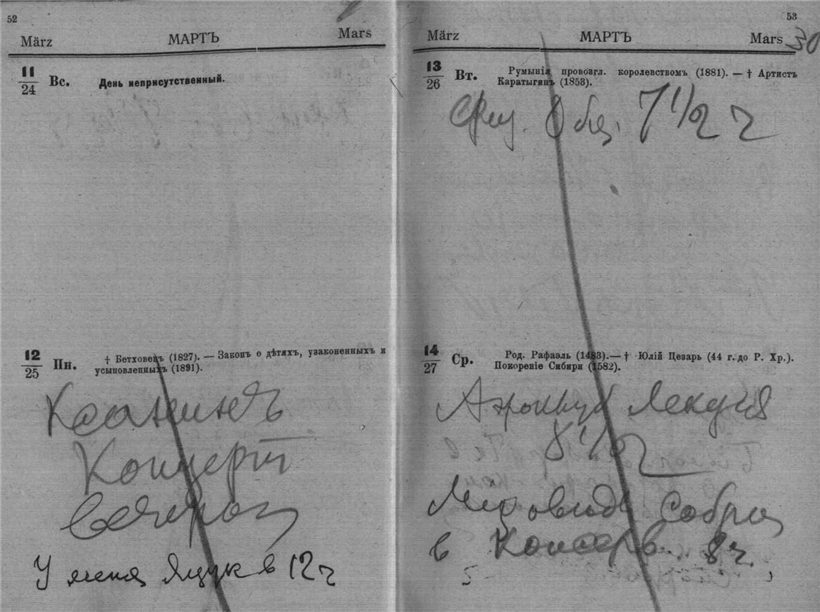 52
März МАРТЪ Mars
11/24 Вс. День неприсутственный.
12/25 Пн. † Бетховенъ (1827). — Законъ о дѣтяхъ, узаконенныхъ и
усыновленныхъ (1891).
Концерт
вечером
У меня в 12 ч
53
März МАРТЪ Mars 30
13/26 Вт. Румынія провозгл. королевствомъ (1881). — † Артистъ
Каратыгинъ (1853).
7 1/2 ч
14/27 Ср. Род. Рафаэль (1483).—† Юлій Цезарь (44 г. до Р. Хр.).
Покореніе Сибири (1582).
Лекция
8 1/2
в Консерв. 8 ч.